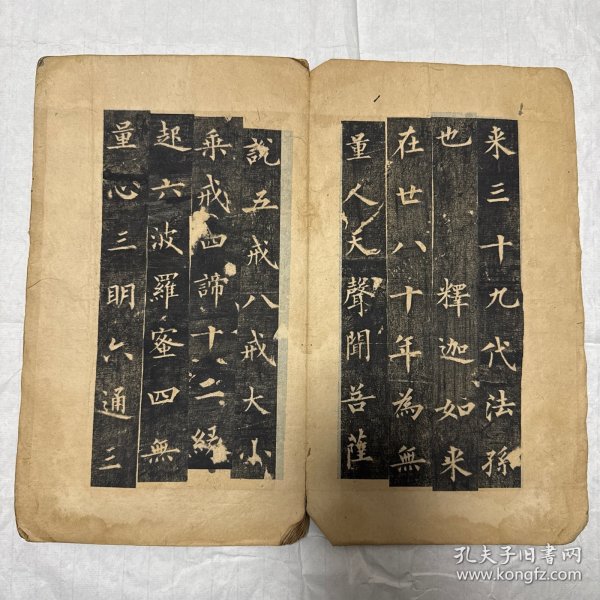 来三十九代法孫
也釋迦如来
在世八十年為無
量人天聲聞菩薩
說五戒八戒大小
乗戒四諦十二緣
起六波羅蜜四無
量心三明六通三
孔夫子旧书网
www.kongfz.com